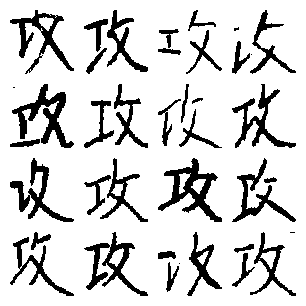 攻攻攻攻
攻攻攻攻
攻攻攻攻
攻攻攻攻